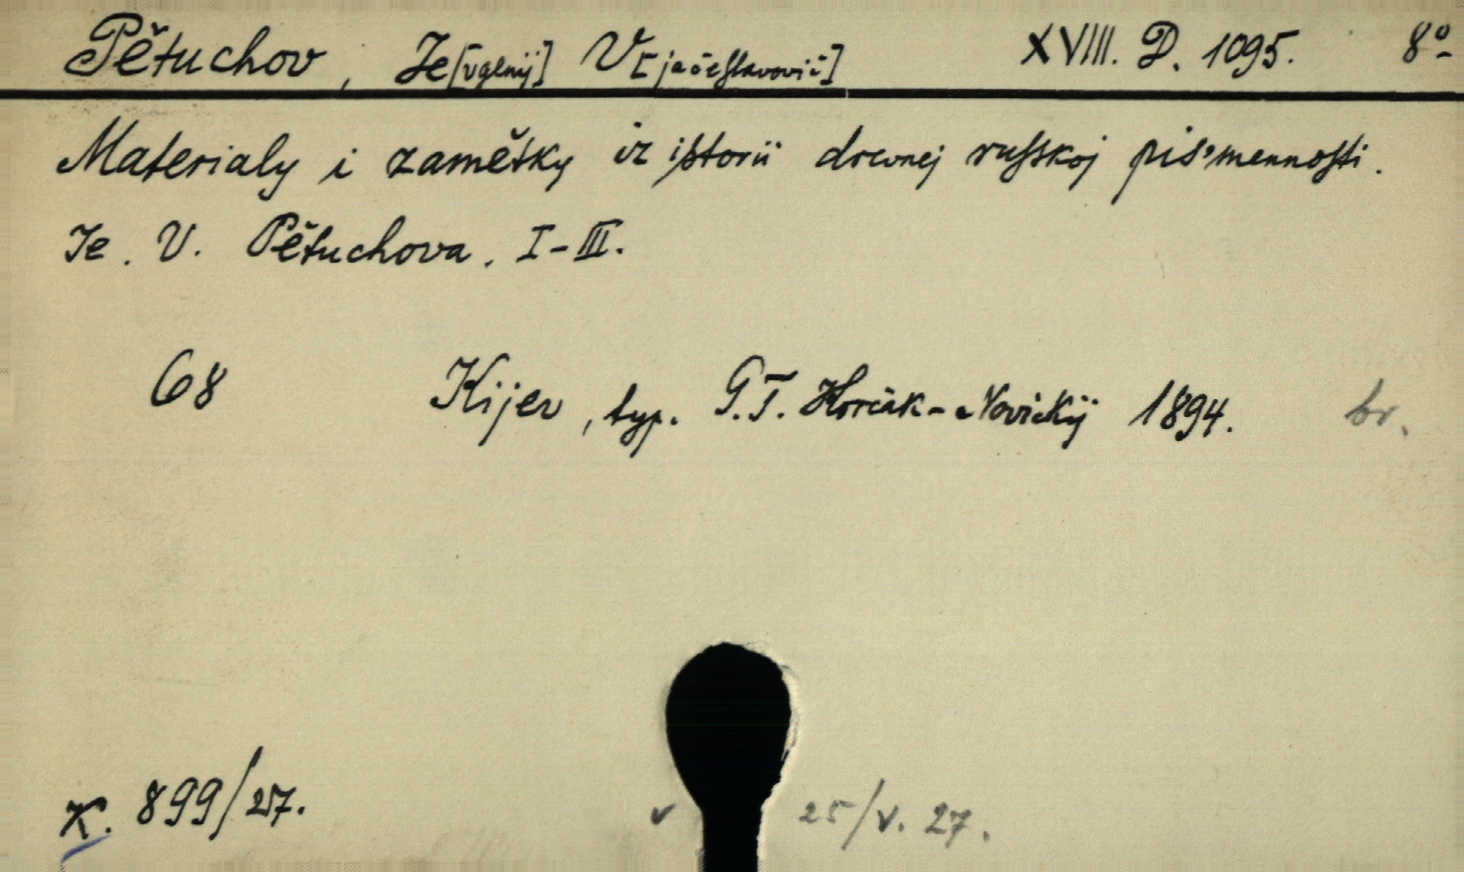 Pětuchov, Je[vgenij] V[jačeslavovič] XVIII. D. 1095. 8º
Materialy i zamětky iz istorii drevnej russkoj pis'mennosti.
Je. V. Pětuchova. I-III.
68 Kijev, typ. G.T. Korčak-Novickij 1894. br.
K. 899/27. v 25/V. 27.